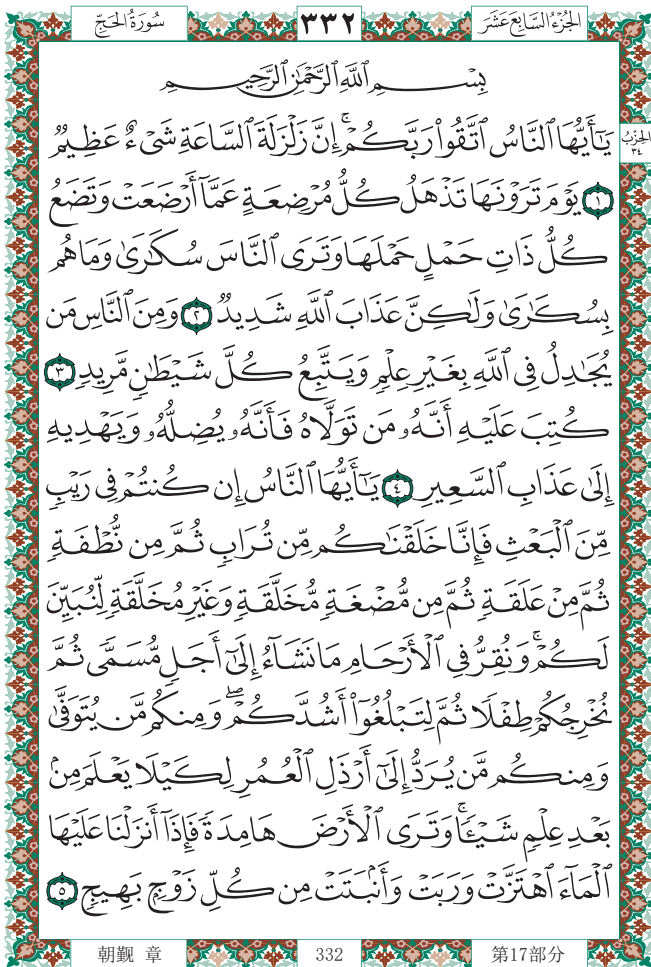 الجُزْءُ السَّابِعَ عَشَرَ ٣٣٢ سُورَةُ الْحَجِّ
بِسْمِ ٱللَّهِ ٱلرَّحْمَٰنِ ٱلرَّحِيمِ
يَٰٓأَيُّهَا ٱلنَّاسُ ٱتَّقُوا۟ رَبَّكُمْ ۚ إِنَّ زَلْزَلَةَ ٱلسَّاعَةِ شَىْءٌ عَظِيمٌ
الحِزْبُ ٣٤
١ يَوْمَ تَرَوْنَهَا تَذْهَلُ كُلُّ مُرْضِعَةٍ عَمَّآ أَرْضَعَتْ وَتَضَعُ
كُلُّ ذَاتِ حَمْلٍ حَمْلَهَا وَتَرَى ٱلنَّاسَ سُكَٰرَىٰ وَمَا هُم
بِسُكَٰرَىٰ وَلَٰكِنَّ عَذَابَ ٱللَّهِ شَدِيدٌ ٢ وَمِنَ ٱلنَّاسِ مَن
يُجَٰدِلُ فِى ٱللَّهِ بِغَيْرِ عِلْمٍ وَيَتَّبِعُ كُلَّ شَيْطَٰنٍ مَّرِيدٍ ٣
كُتِبَ عَلَيْهِ أَنَّهُۥ مَن تَوَلَّاهُ فَأَنَّهُۥ يُضِلُّهُۥ وَيَهْدِيهِ
إِلَىٰ عَذَابِ ٱلسَّعِيرِ ٤ يَٰٓأَيُّهَا ٱلنَّاسُ إِن كُنتُمْ فِى رَيْبٍ
مِّنَ ٱلْبَعْثِ فَإِنَّا خَلَقْنَٰكُم مِّن تُرَابٍ ثُمَّ مِن نُّطْفَةٍ
ثُمَّ مِنْ عَلَقَةٍ ثُمَّ مِن مُّضْغَةٍ مُّخَلَّقَةٍ وَغَيْرِ مُخَلَّقَةٍ لِّنُبَيِّنَ
لَكُمْ ۚ وَنُقِرُّ فِى ٱلْأَرْحَامِ مَا نَشَآءُ إِلَىٰٓ أَجَلٍ مُّسَمًّى ثُمَّ
نُخْرِجُكُمْ طِفْلًا ثُمَّ لِتَبْلُغُوٓا۟ أَشُدَّكُمْ ۖ وَمِنكُم مَّن يُتَوَفَّىٰ
وَمِنكُم مَّن يُرَدُّ إِلَىٰٓ أَرْذَلِ ٱلْعُمُرِ لِكَيْلَا يَعْلَمَ مِنۢ
بَعْدِ عِلْمٍ شَيْـًٔا ۚ وَتَرَى ٱلْأَرْضَ هَامِدَةً فَإِذَآ أَنزَلْنَا عَلَيْهَا
ٱلْمَآءَ ٱهْتَزَّتْ وَرَبَتْ وَأَنۢبَتَتْ مِن كُلِّ زَوْجٍۭ بَهِيجٍ ٥
朝觐 章 332 第17部分